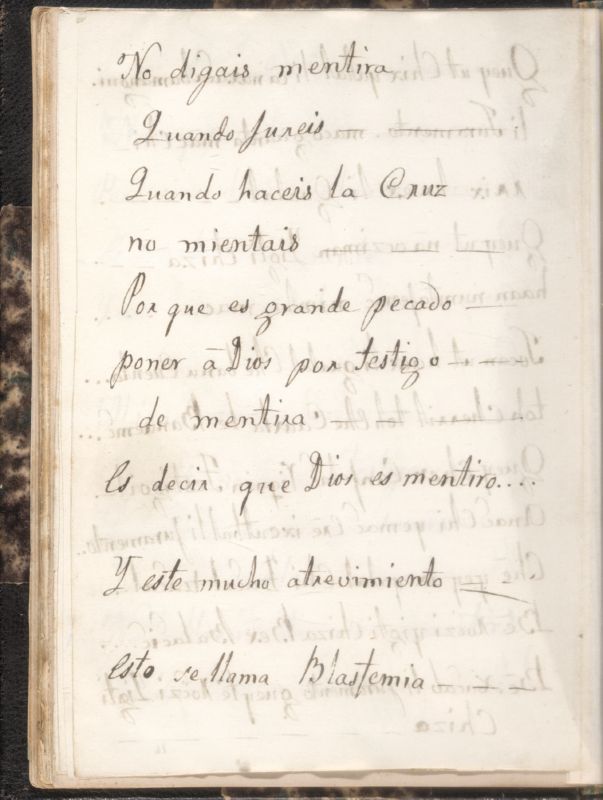 No digais mentira
Quando Jureis
Quando haceis la Cruz
no mientais
Por que es grande pecado
poner â Dios por testigo
de mentira
Es decir que Dios es mentiro....
Y este mucho atrevimiento
Esto se llama Blastemia